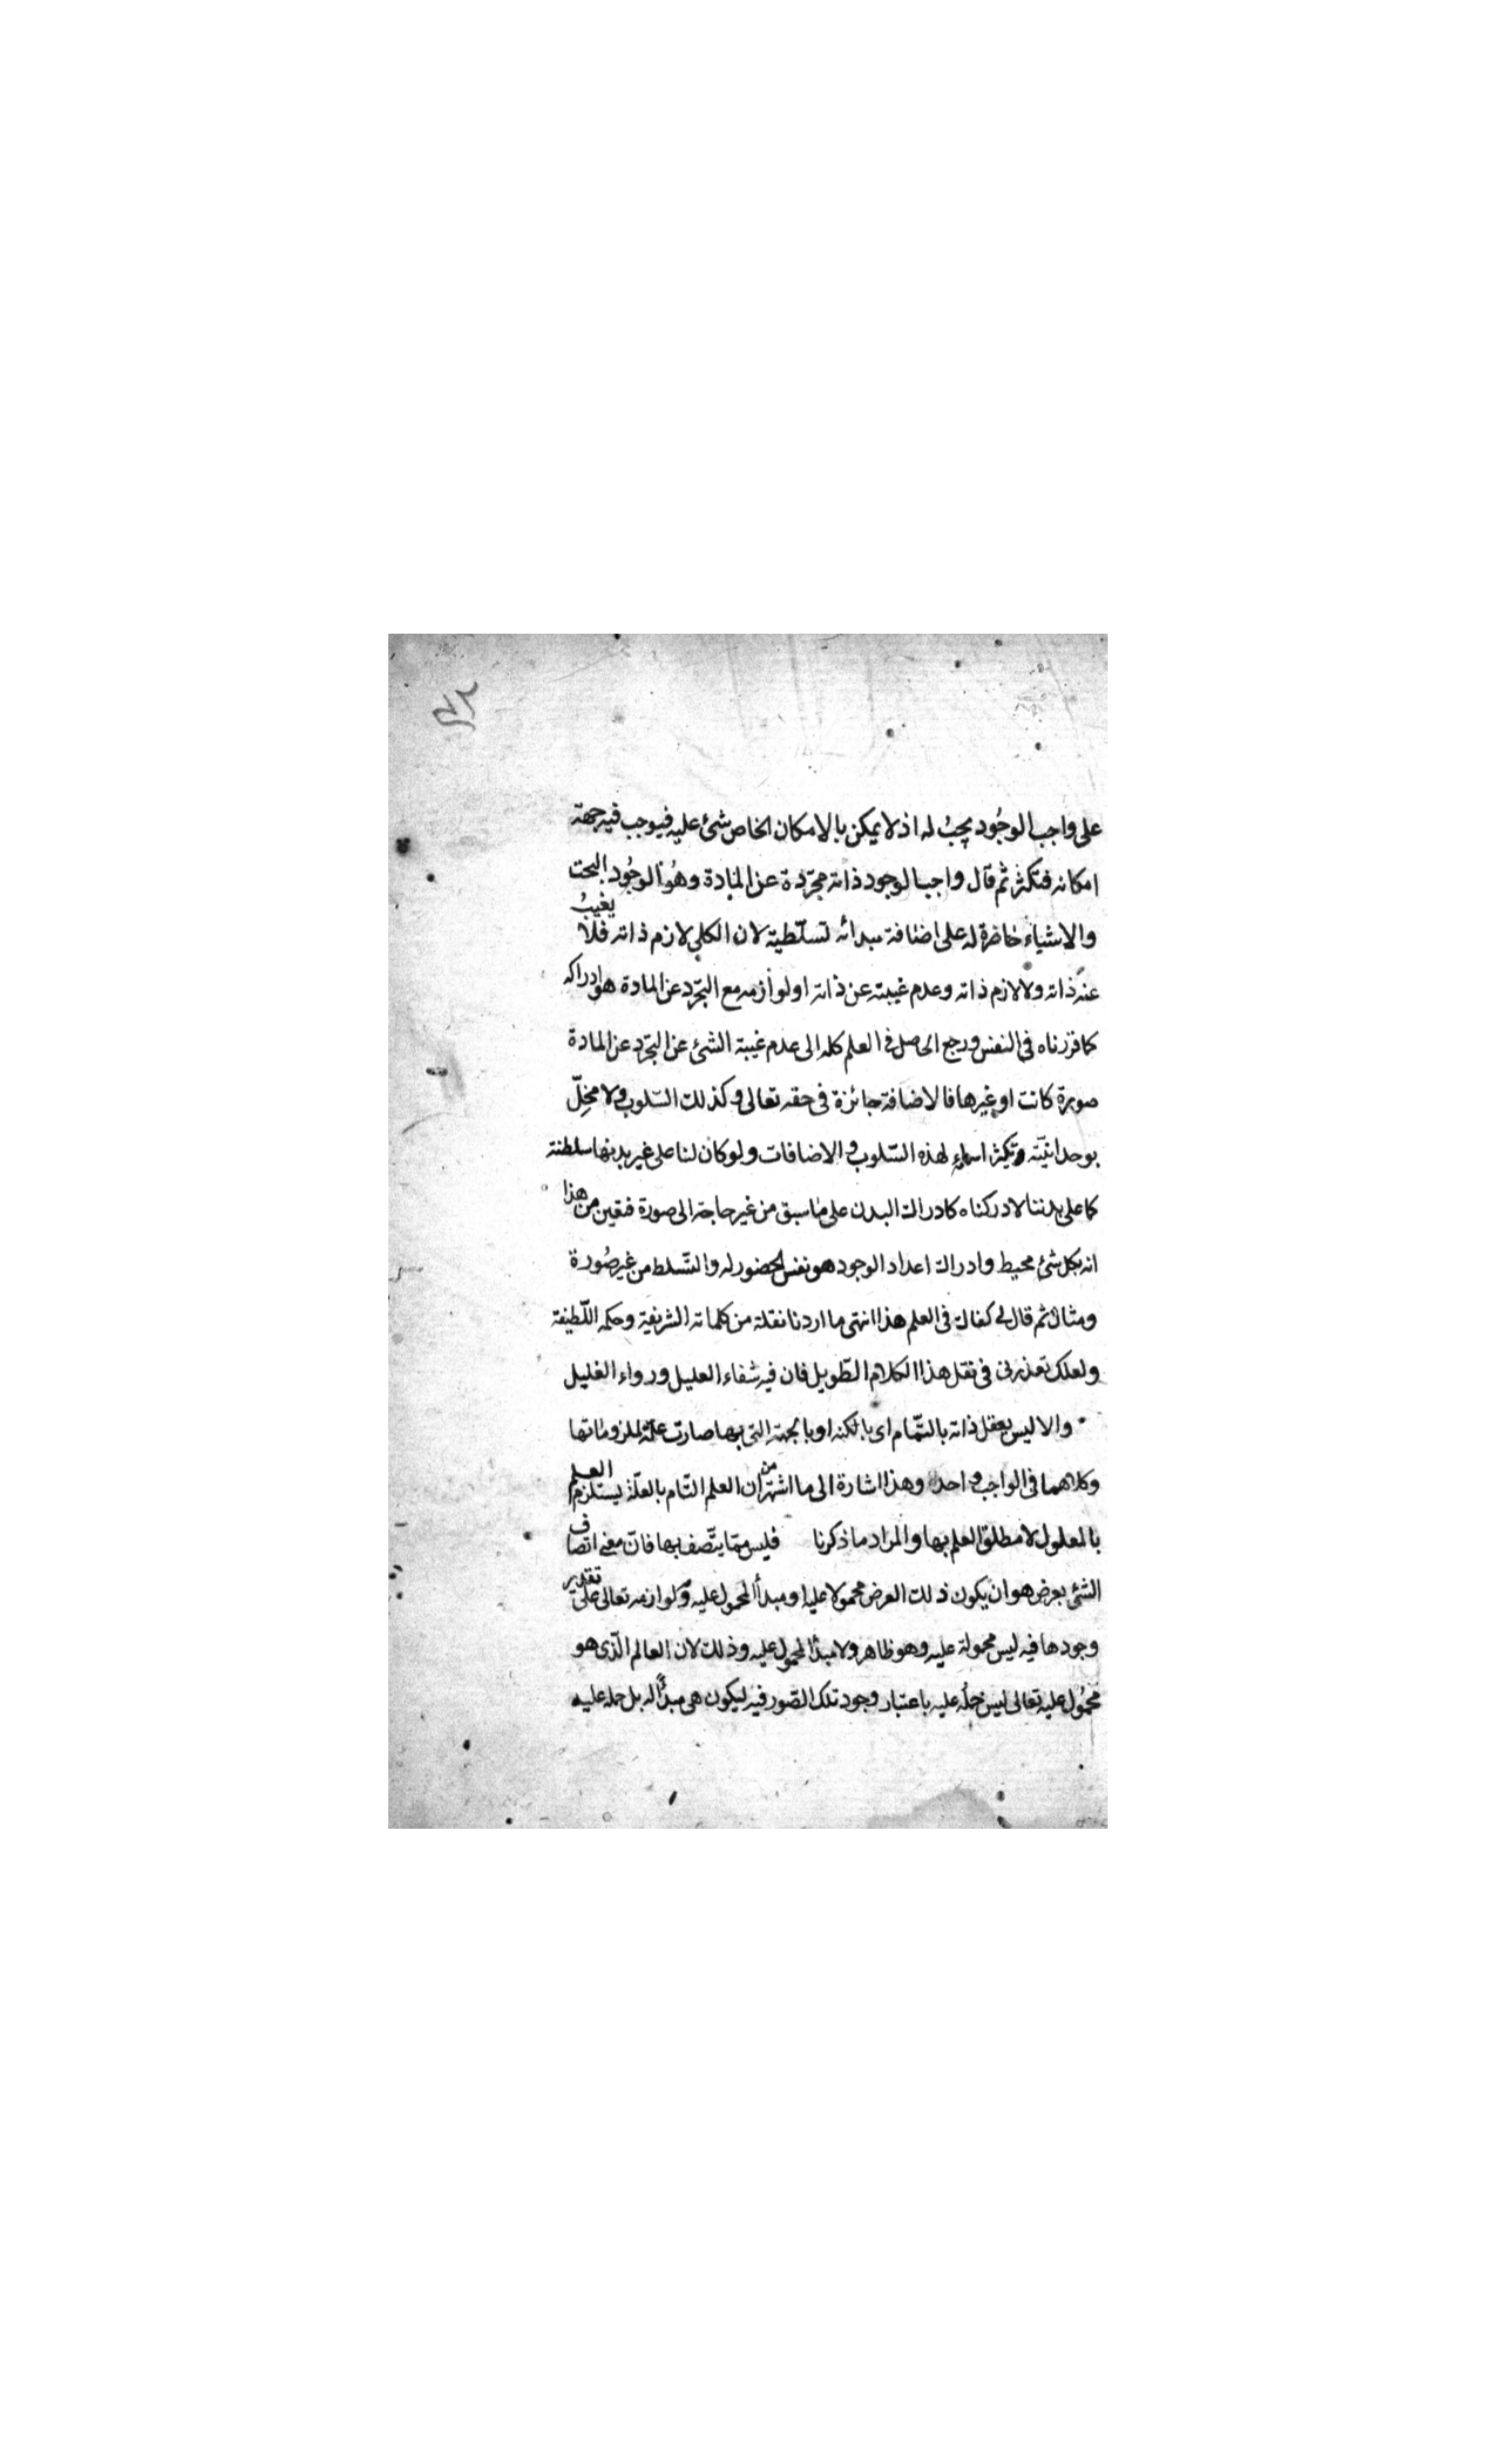 على واجب الوجُود يجبُ له اذ لا يمكن بالامكان الخاص شئ عليه فيوجب فيه جهة
امكانه فتكثر ثم قال واجب الوجود ذاته مجرّدة عن المادة وهُو الوجُود البحت
والاشياء حاضرة له على اضافة مبدائه تسلّطية لان الكلي لازم ذاته فلا يغيبُ
عنه ذاته ولا لازم ذاته وعدم غيبته عن ذاته او لوازمه مع التجرّد عن المادة هو ادراكه
كما قررناه فى النفس ورجع الحاصل فى العلم كله الى عدم غيبة الشئ عن التجرّد عن المادة
صورة كانت او غيرها فالاضافة جائزة فى حقه تعالى وكذلك السّلوب ولا مخِلّ
بوحدانيّته وتكثر اسمائه لهذه السّلوب والاضافات ولو كان لنا على غير بدنها سلطنة
كما على بدننا لادركناه كادراك البدن على ما سبق من غير حاجة الى صورة فتعين من هذا
انه بكل شئ محيط وادراك اعداد الوجود هو نفس الحضور له والتّسلط من غير صُورة
ومثال ثم قال لى كفاك فى العلم هذا انتهى ما اردنا نقلة من كلماته الشريفة وحكمه اللّطيفة
ولعلك تعذرنى فى نقل هذا الكلام الطّويل فان فيه شفاء العليل ورواء الغليل
والا ليس يعقل ذاته بالتّمام اى بالكنه او بالجهة التى بها صارت علّة لملزوماتها
وكلاهما فى الواجب واحد وهذا اشارة الى ما اشتهر من ان العلم التام بالعلّة يستلزم العلم
بالمعلول لا مطلق العلم بها والمراد ما ذكرنا فليس ممّا يتّصف بها فانّ معنى اتصاف
الشئ بعرض هو ان يكون ذلك العرض محمولا عليه او مبدأ المحمول عليه ولوازمه تعالى على تقدير
وجودها فيه ليس محمولة عليه وهو ظاهر ولا مبدأ لمحمول عليه وذلك لان العالم الّذى هو
محمُول عليه تعالى ليس حمله عليه باعتبار وجود تلك الصّور فيه ليكون هى مبدأً له بل حمله عليه